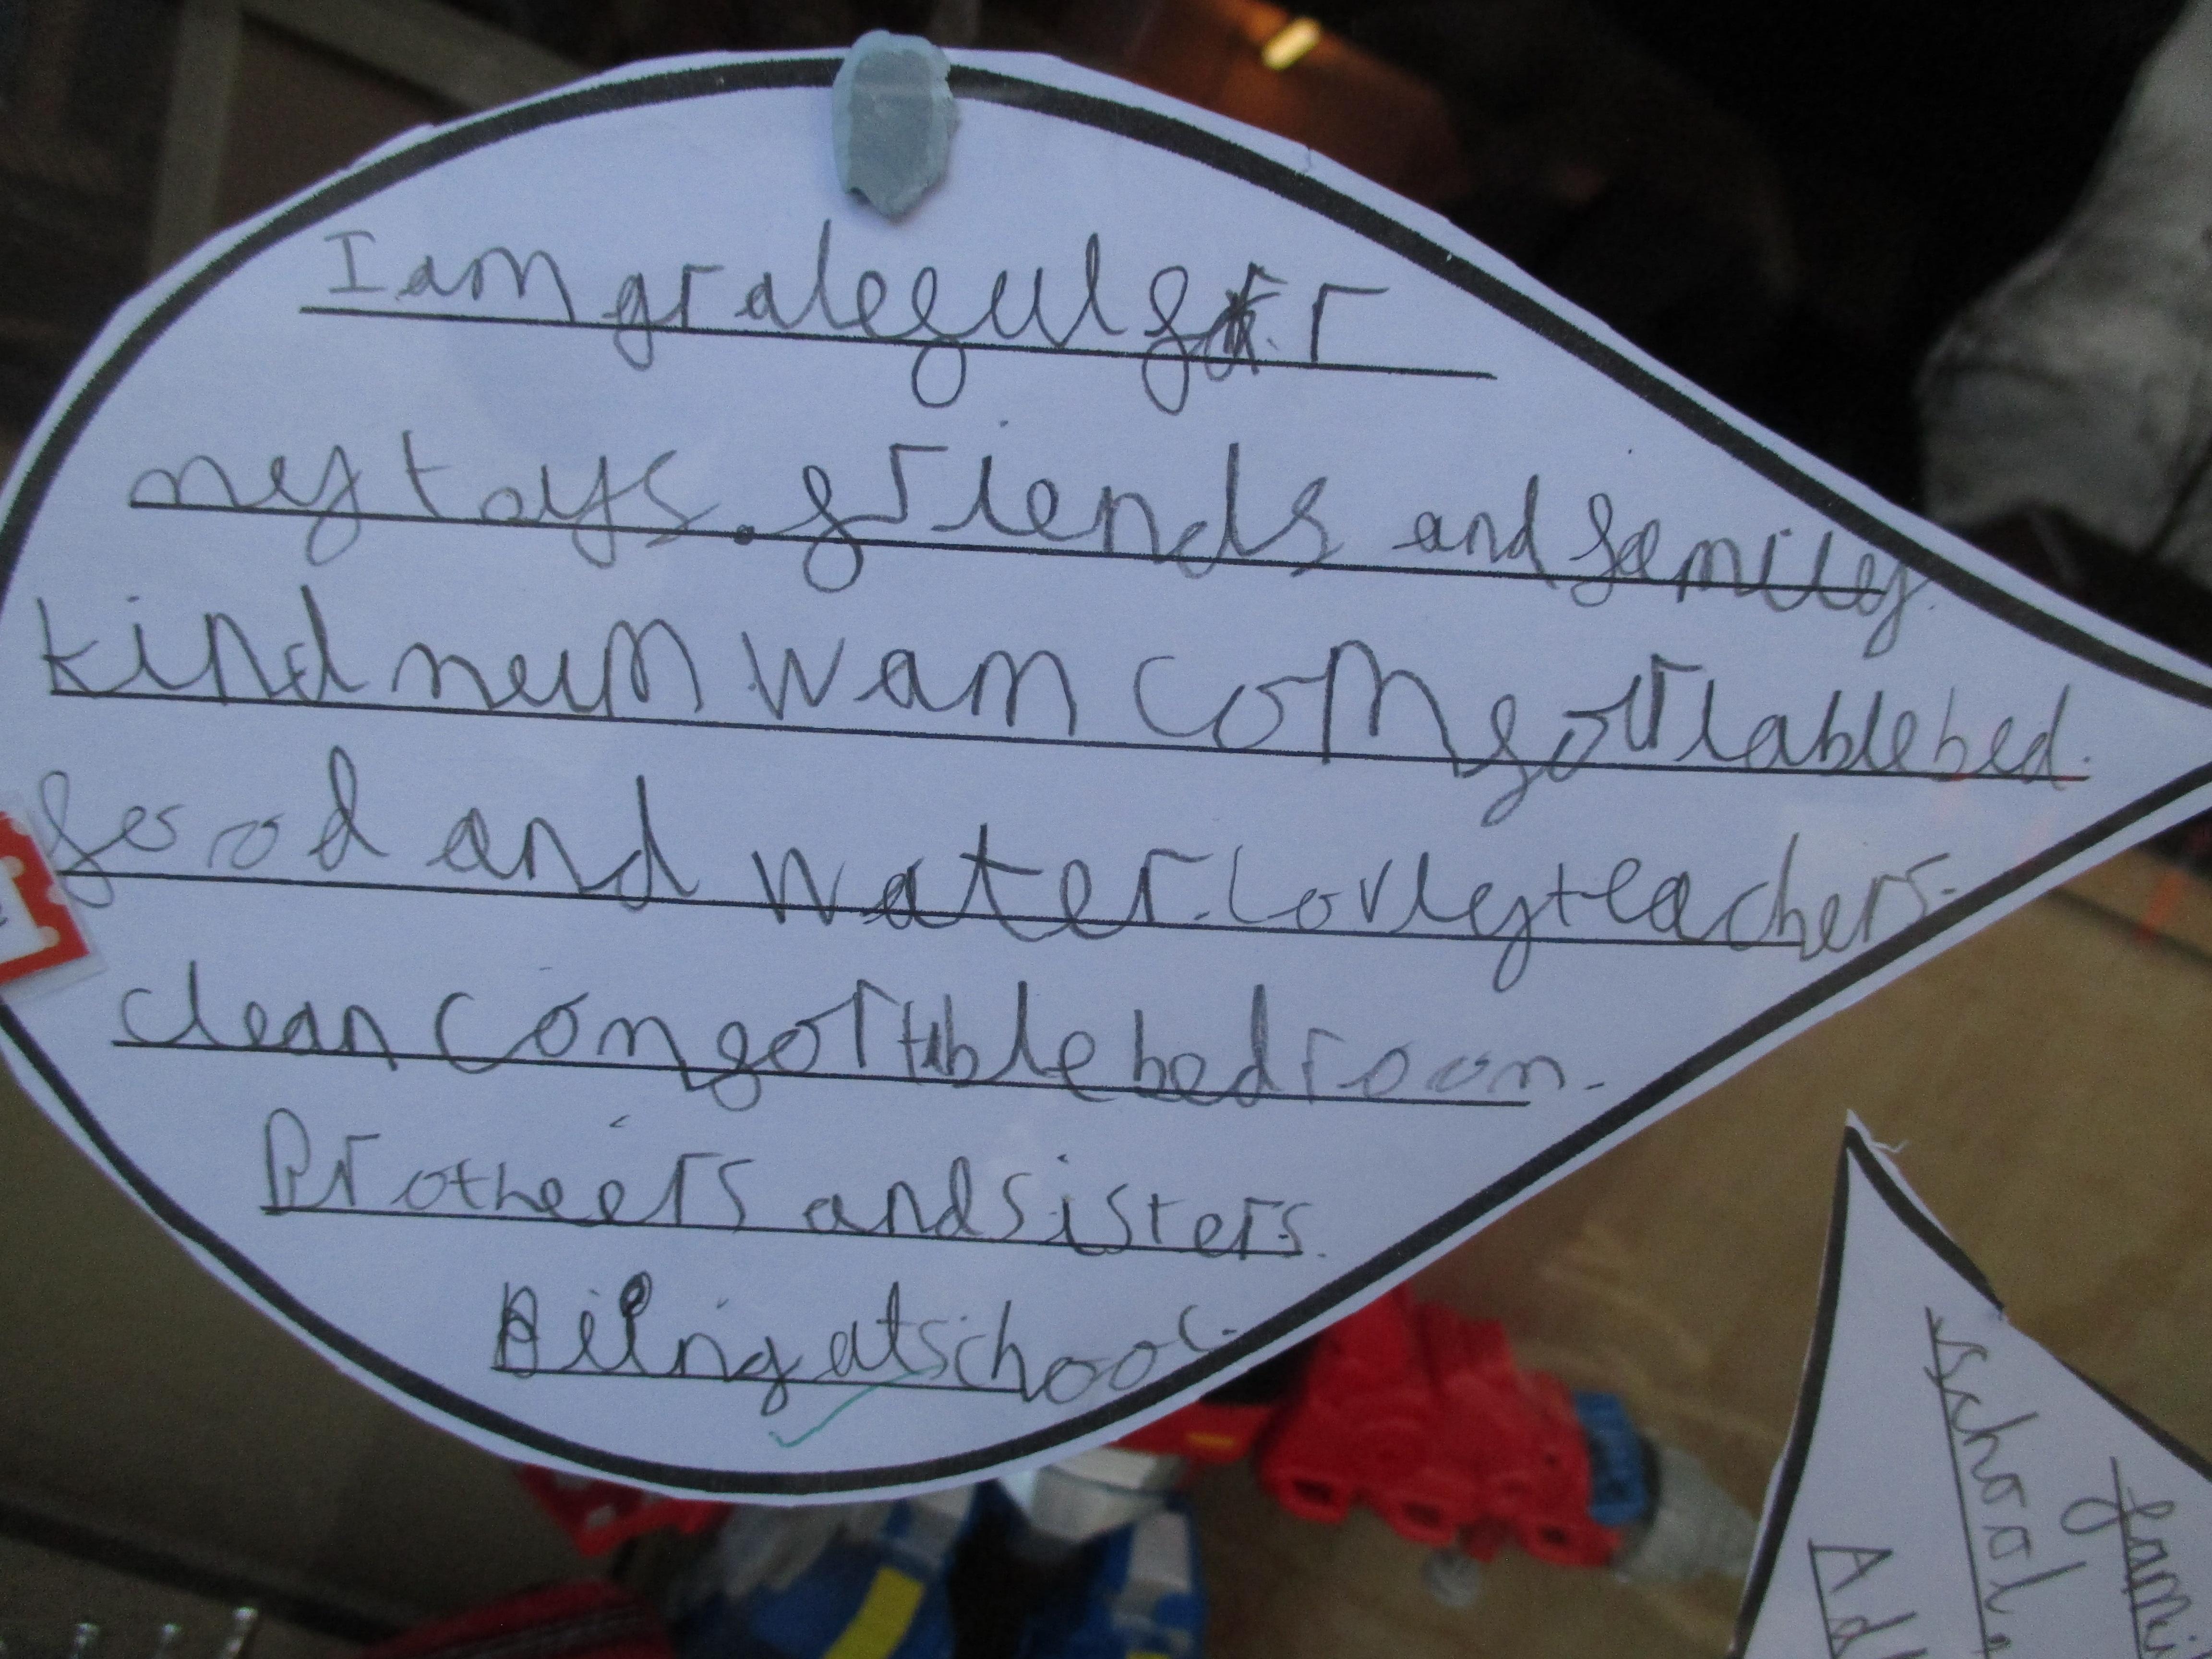 I am grateful for
my toys. friends and family.
kind mum wam comfortable bed.
food and water. Lovley teachers.
clean comfortible bedroom.
Brotheers and sisters.
Being at school.
school.
fami
Ad